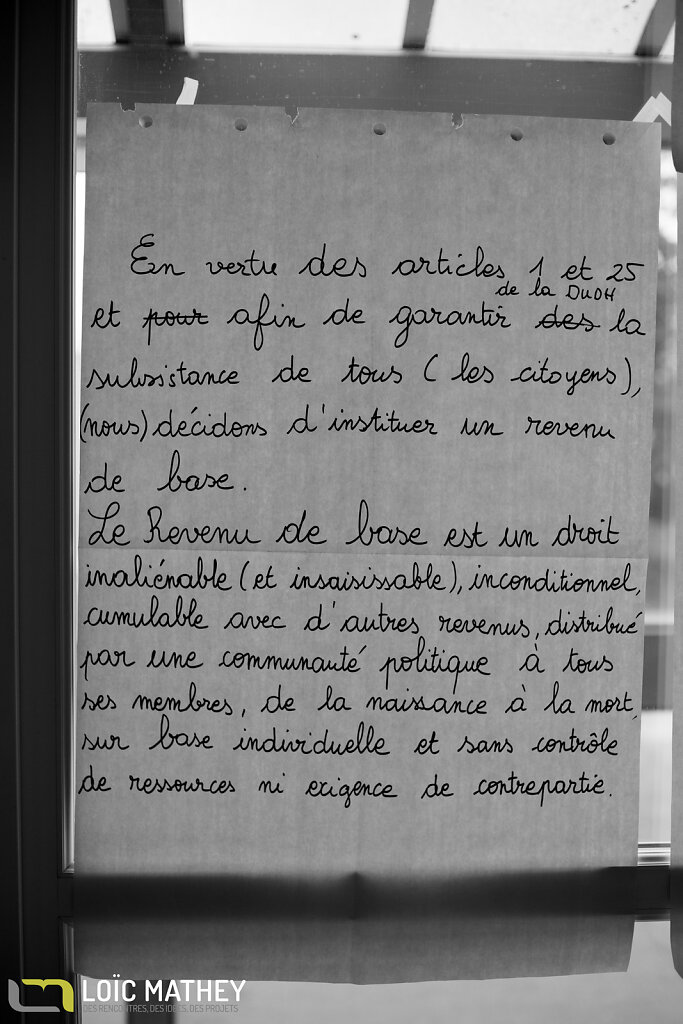 En vertu des articles 1 et 25
de la DUDH
et pour afin de garantir des la
subsistance de tous (les citoyens),
(nous) décidons d'instituer un revenu
de base.
Le Revenu de base est un droit
inaliénable (et insaisissable), inconditionnel,
cumulable avec d'autres revenus, distribué
par une communauté politique à tous
ses membres, de la naissance à la mort,
sur base individuelle et sans contrôle
de ressources ni exigence de contrepartie.
LOÏC MATHEY
DES RENCONTRES, DES IDÉES, DES PROJETS